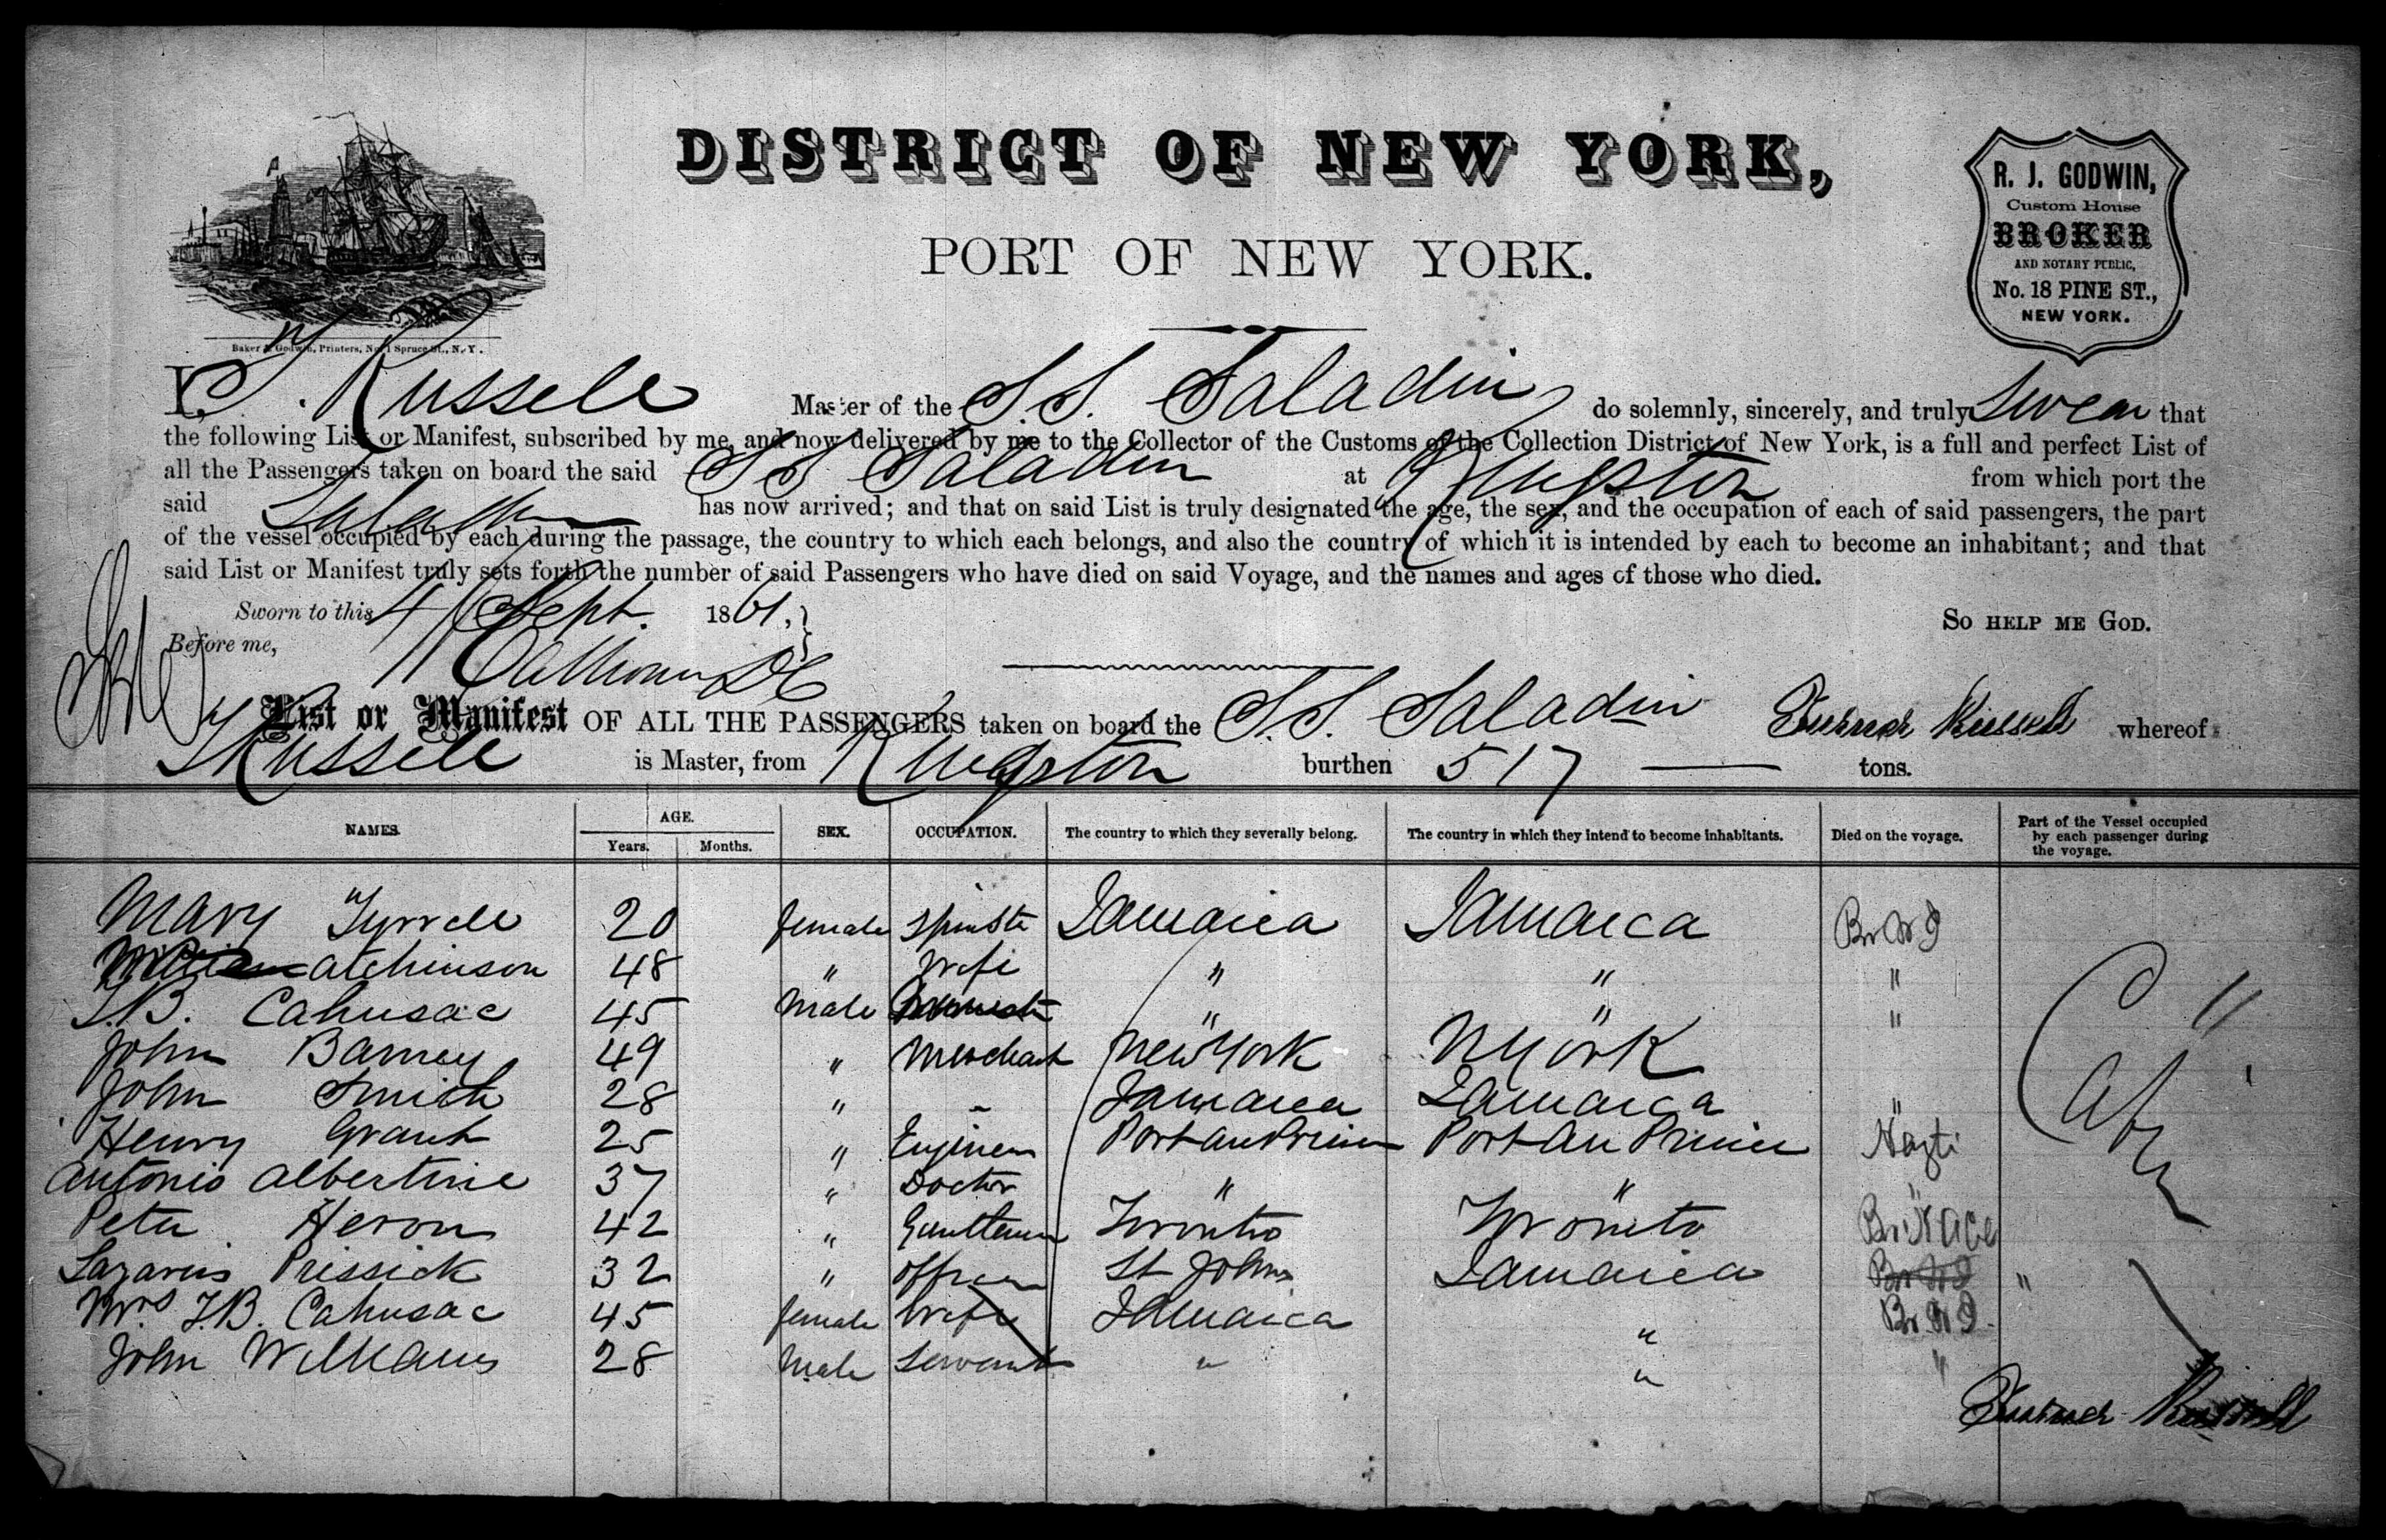 DISTRICT OF NEW YORK,
PORT OF NEW YORK.
R. J. GODWIN,
Custom House
BROKER
AND NOTARY PUBLIC,
No. 18 PINE ST.,
NEW YORK.
Baker & Godwin, Printers, No. 1 Spruce St., N. Y.
I, Russell Master of the S.S. Saladin do solemnly, sincerely, and truly Swear that
the following List or Manifest, subscribed by me, and now delivered by me to the Collector of the Customs of the Collection District of New York, is a full and perfect List of
all the Passengers taken on board the said SS Saladin at Kingston from which port the
said Saladin has now arrived; and that on said List is truly designated the age, the sex, and the occupation of each of said passengers, the part
of the vessel occupied by each during the passage, the country to which each belongs, and also the country of which it is intended by each to become an inhabitant; and that
said List or Manifest truly sets forth the number of said Passengers who have died on said Voyage, and the names and ages of those who died.
Sworn to this 4 Sept. 1861. So HELP ME GOD.
Before me,
Calhoun DC
List or Manifest OF ALL THE PASSENGERS taken on board the S.S. Saladin Russell whereof
Russell is Master, from Kingston burthen 517 tons.
NAMES. AGE. Years. Months. SEX. OCCUPATION. The country to which they severally belong. The country in which they intend to become inhabitants. Died on the voyage. Part of the Vessel occupied by each passenger during the voyage.
Mary Tyrrell 20 female Spinste Jamaica Jamaica Br W I
atchinson 48 " Wife " " "
B. Cahusac 45 Male " " "
John Barney 49 " Merchant New York N York
John Smith 28 " " Jamaica Jamaica "
Henry Grant 25 " Engineer Port au Prince Port au Prince Hayti
Antonio Albertine 37 " Doctor " " "
Peter Heron 42 " Gentleman Toronto Toronto
Lazarus Prissick 32 " Officer St Johns Jamaica Br W I "
Mrs J.B. Cahusac 45 female Wife Jamaica " Br W I.
John Williams 28 Male Servant " " "
Russell